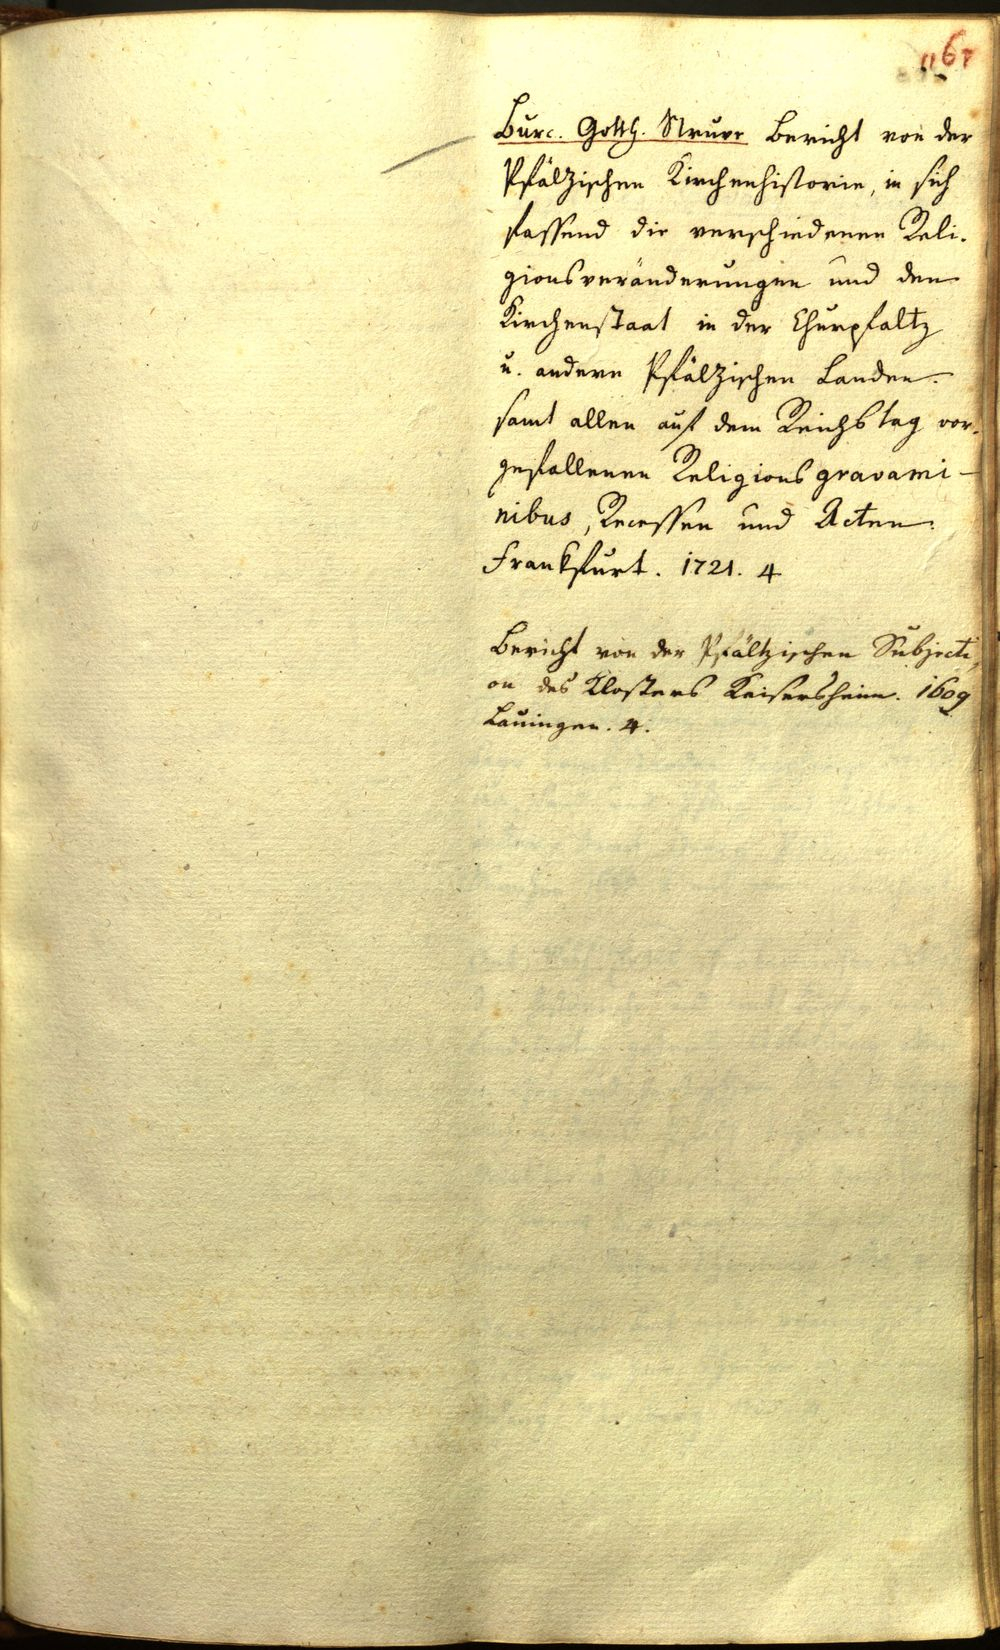 Burc. Gotth. Struve Bericht von der
Pfälzischen Kirchenhistorie, in sich
fassend die verschiedenen Reli-
gionsveränderungen und den
Kirchenstaat in der Churpfaltz
u. andern Pfälzischen Landen.
samt allen auf dem Reichstag vor-
gefallenen Religions gravami-
nibus, Recessen und Acten.
Frankfurt. 1721. 4
Bericht von der Pfältzischen Subjecti
on des Klosters Keisersheim. 1609
Lauingen. 4.